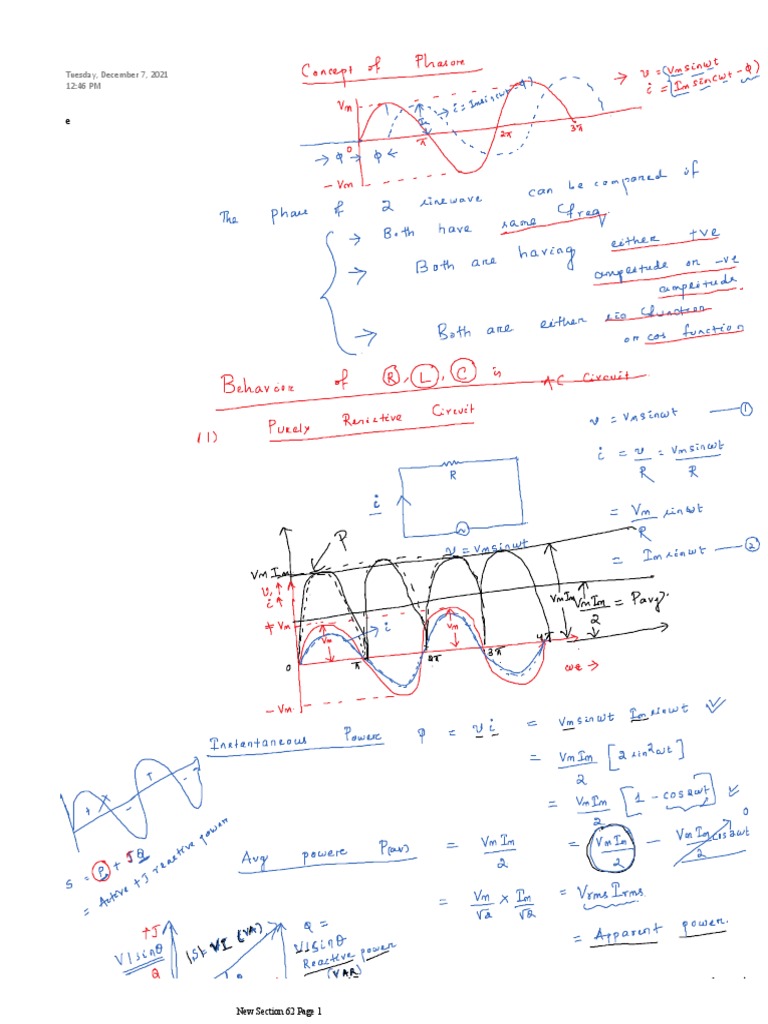 Tuesday, December 7, 2021
12:46 PM
e
Concept of Phasors
v = Vm sinωt
i = Im sin(ωt - φ)
Vm
i = Im sin(ωt - φ)
0
π
2π
3π
→ φ → φ ←
- Vm
The phase of 2 sinewave can be compared if
→ Both have same freq.
→ Both are having either +ve
amplitude or -ve
amplitude
→ Both are either sin function
or cos function
Behavior of R, L, C in AC Circuit
(1) Purely Resistive Circuit
v = Vm sinωt —— ①
i = v/R = Vm sinωt/R
= Vm/R sinωt
= Im sinωt —— ②
R
i
v = Vm sinωt
P
Vm Im
v, ↑
i ↑
Vm
Vm
i
Vm
Vm Im
Vm Im/2 = Pavg.
0
π
2π
3π
4π
ωt →
- Vm
Instantaneous Power p = v i = Vm sinωt Im sinωt
= Vm Im/2 [2 sin²ωt]
= Vm Im/2 [1 - cos2ωt]
+
-
+
-
Avg power P(av) = Vm Im/2 = Vm Im/2 - Vm Im cos2ωt/2
0
S = P + JQ
= Active + J reactive power
= Vm/√2 × Im/√2 = Vrms Irms
= Apparent power.
+J
VI sinθ
Q
|S| = VI (VA)
θ
Q =
VI sinθ
Reactive power
(VAR)
New Section 62 Page 1